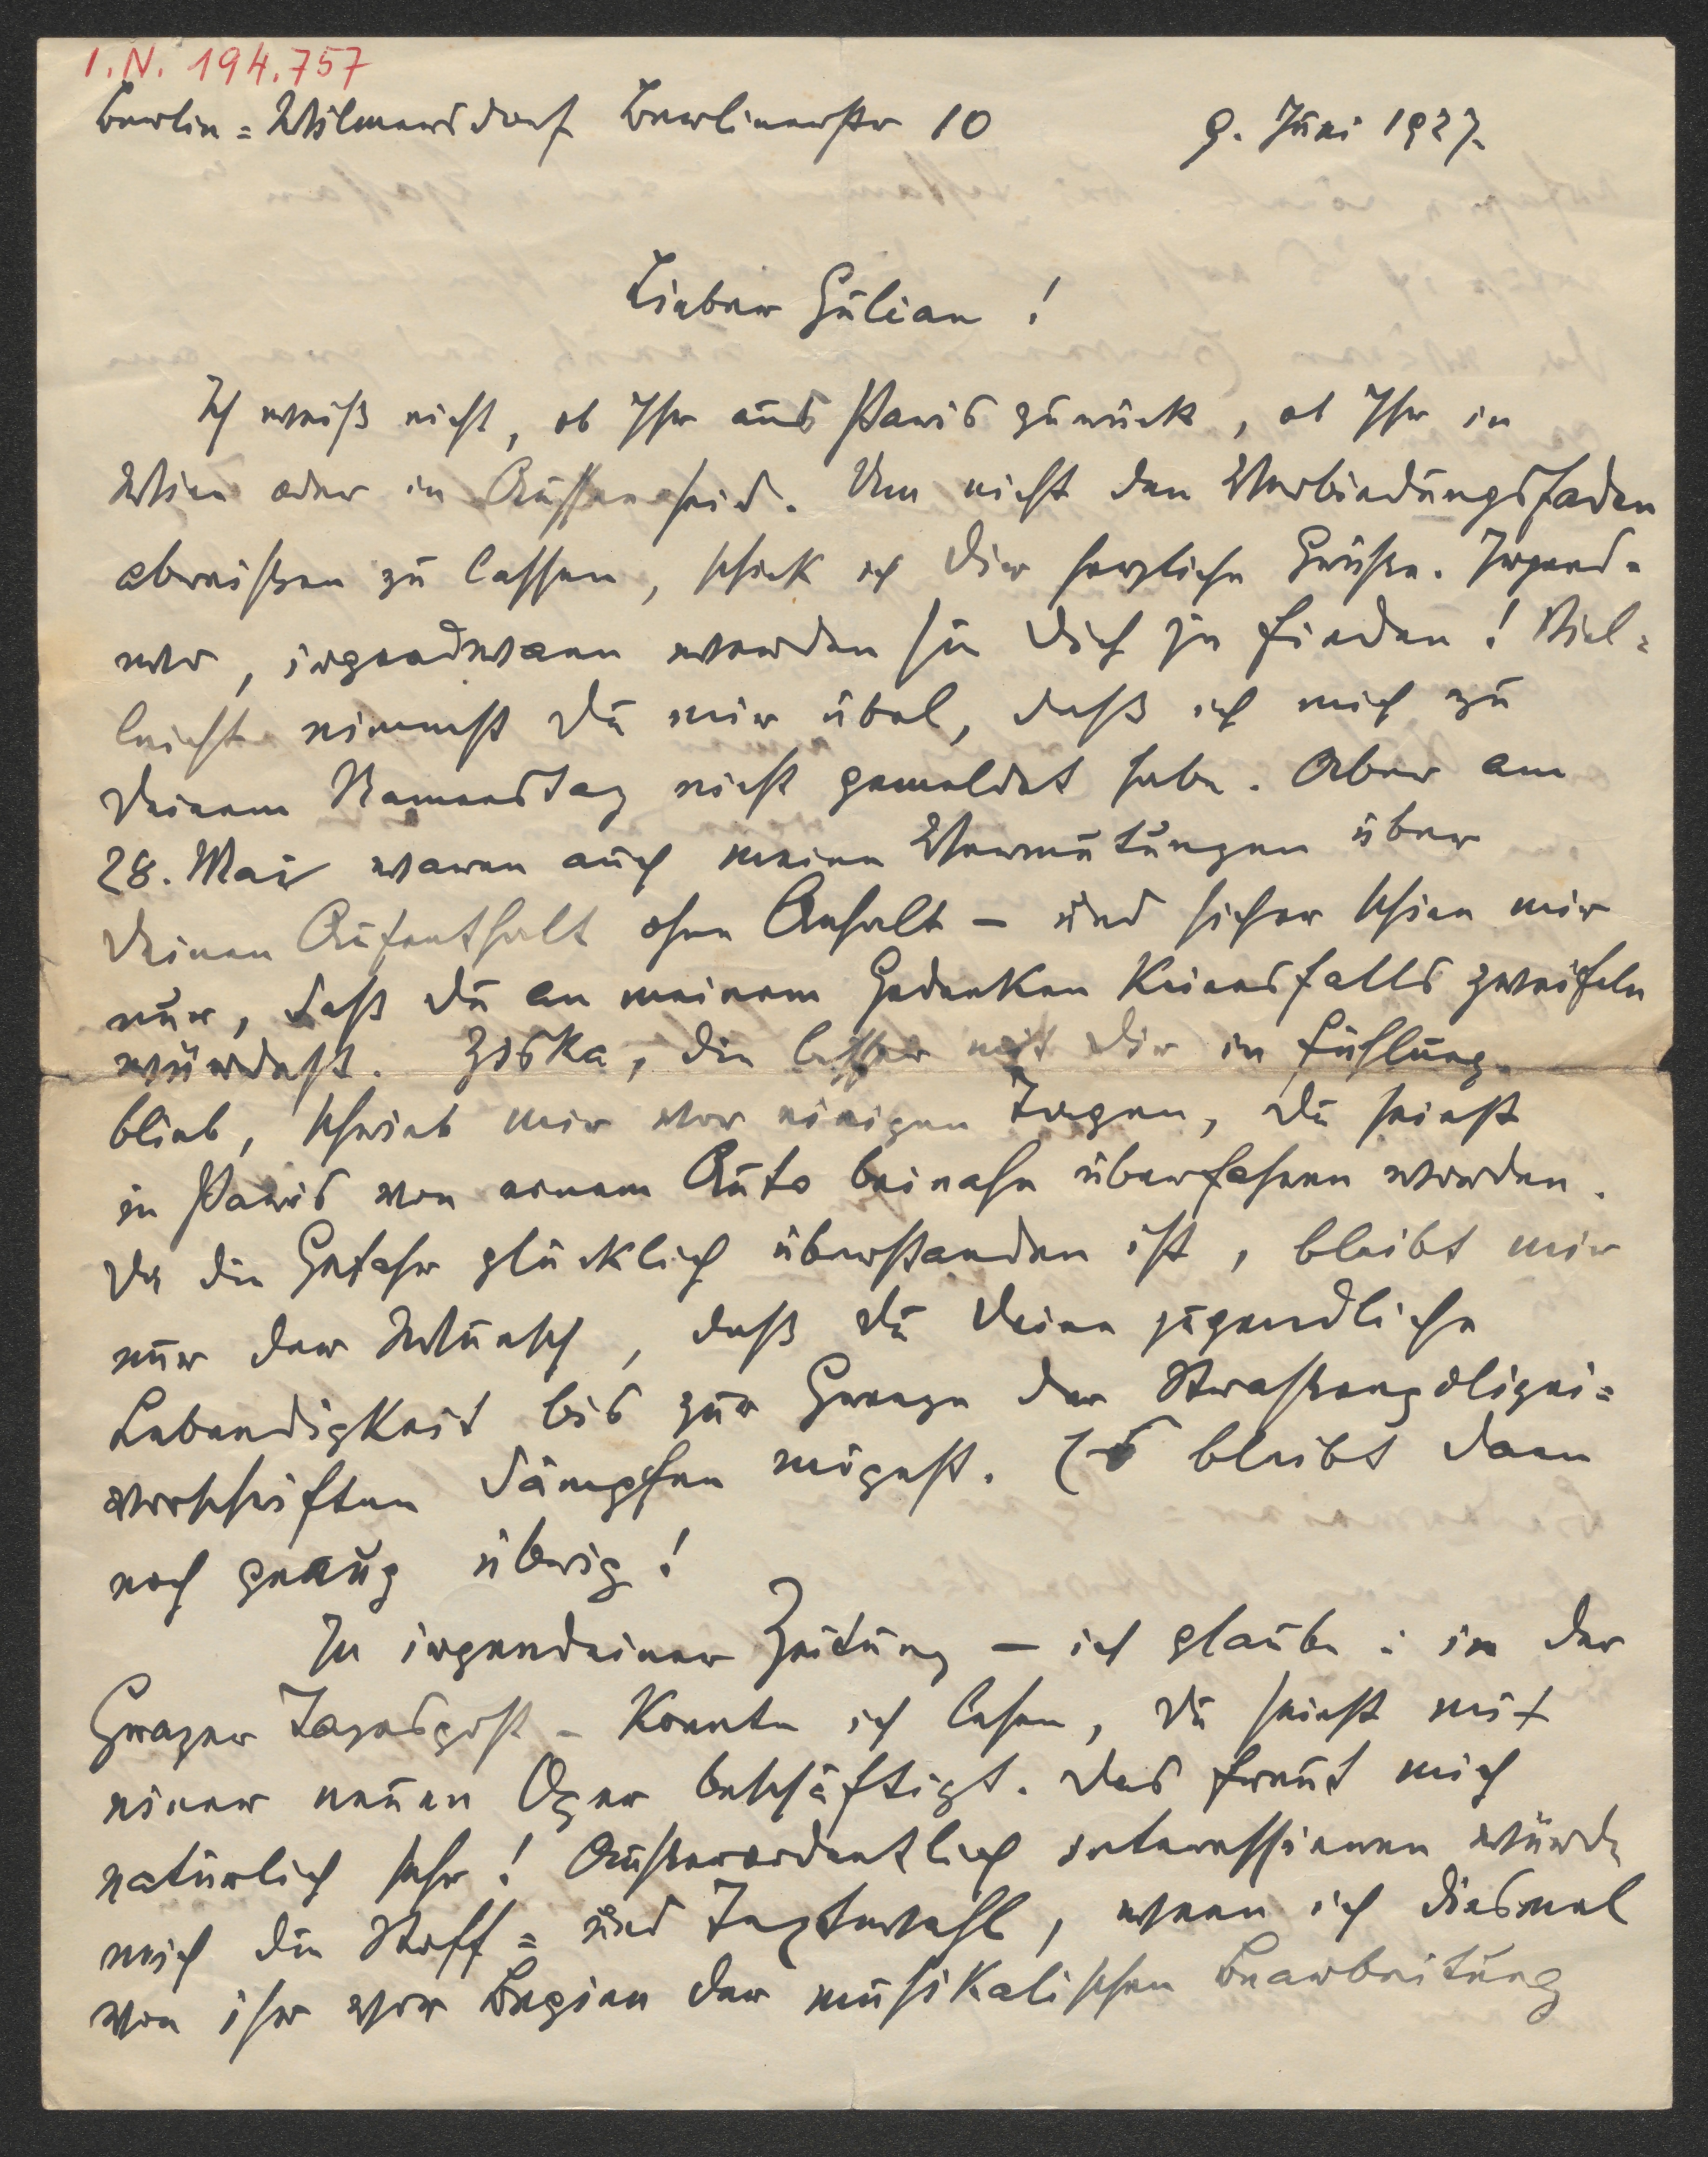 I.N. 194.757
Berlin=Wilmersdorf Berlinerstr 10 9. Juni 1927.
Lieber Gülian!
Ich weiß nicht, ob Ihr aus Paris zurück, ob Ihr in
Wien oder in Aussee seid. Um nicht den Verbindungsfaden
abreißen zu lassen, schick ich Dir herzliche Grüße. Irgend=
wo, irgendwann werden sie Dich ja finden! Viel=
leicht nimmst Du mir übel, daß ich mich zu
Deinem Namenstag nicht gemeldet habe. Aber am
28. Mai waren auch meine Vermutungen über
Deinen Aufenthalt ohne Anhalt – und sicher schien mir
nur, daß Du an meinem Gedenken keinesfalls zweifeln
würdest. Ziska, die besser mit Dir in Fühlung
blieb, schrieb mir vor einigen Tagen, Du seiest
in Paris von einem Auto beinahe überfahren worden.
Da die Gefahr glücklich überstanden ist, bleibt mir
nur der Wunsch, daß Du Deine jugendliche
Lebendigkeit bis zur Grenze der Straßenpolizei=
vorschriften dämpfen mögest. Es bleibt dann
noch genug übrig!
In irgendeiner Zeitung – ich glaube: in der
Grazer Tagespost – konnte ich lesen, Du seiest mit
einer neuen Oper beschäftigt. Das freut mich
natürlich sehr! Außerordentlich interessieren würde
mich die Stoff= und Textwahl, wenn ich diesmal
von ihr vor Beginn der musikalischen Bearbeitung